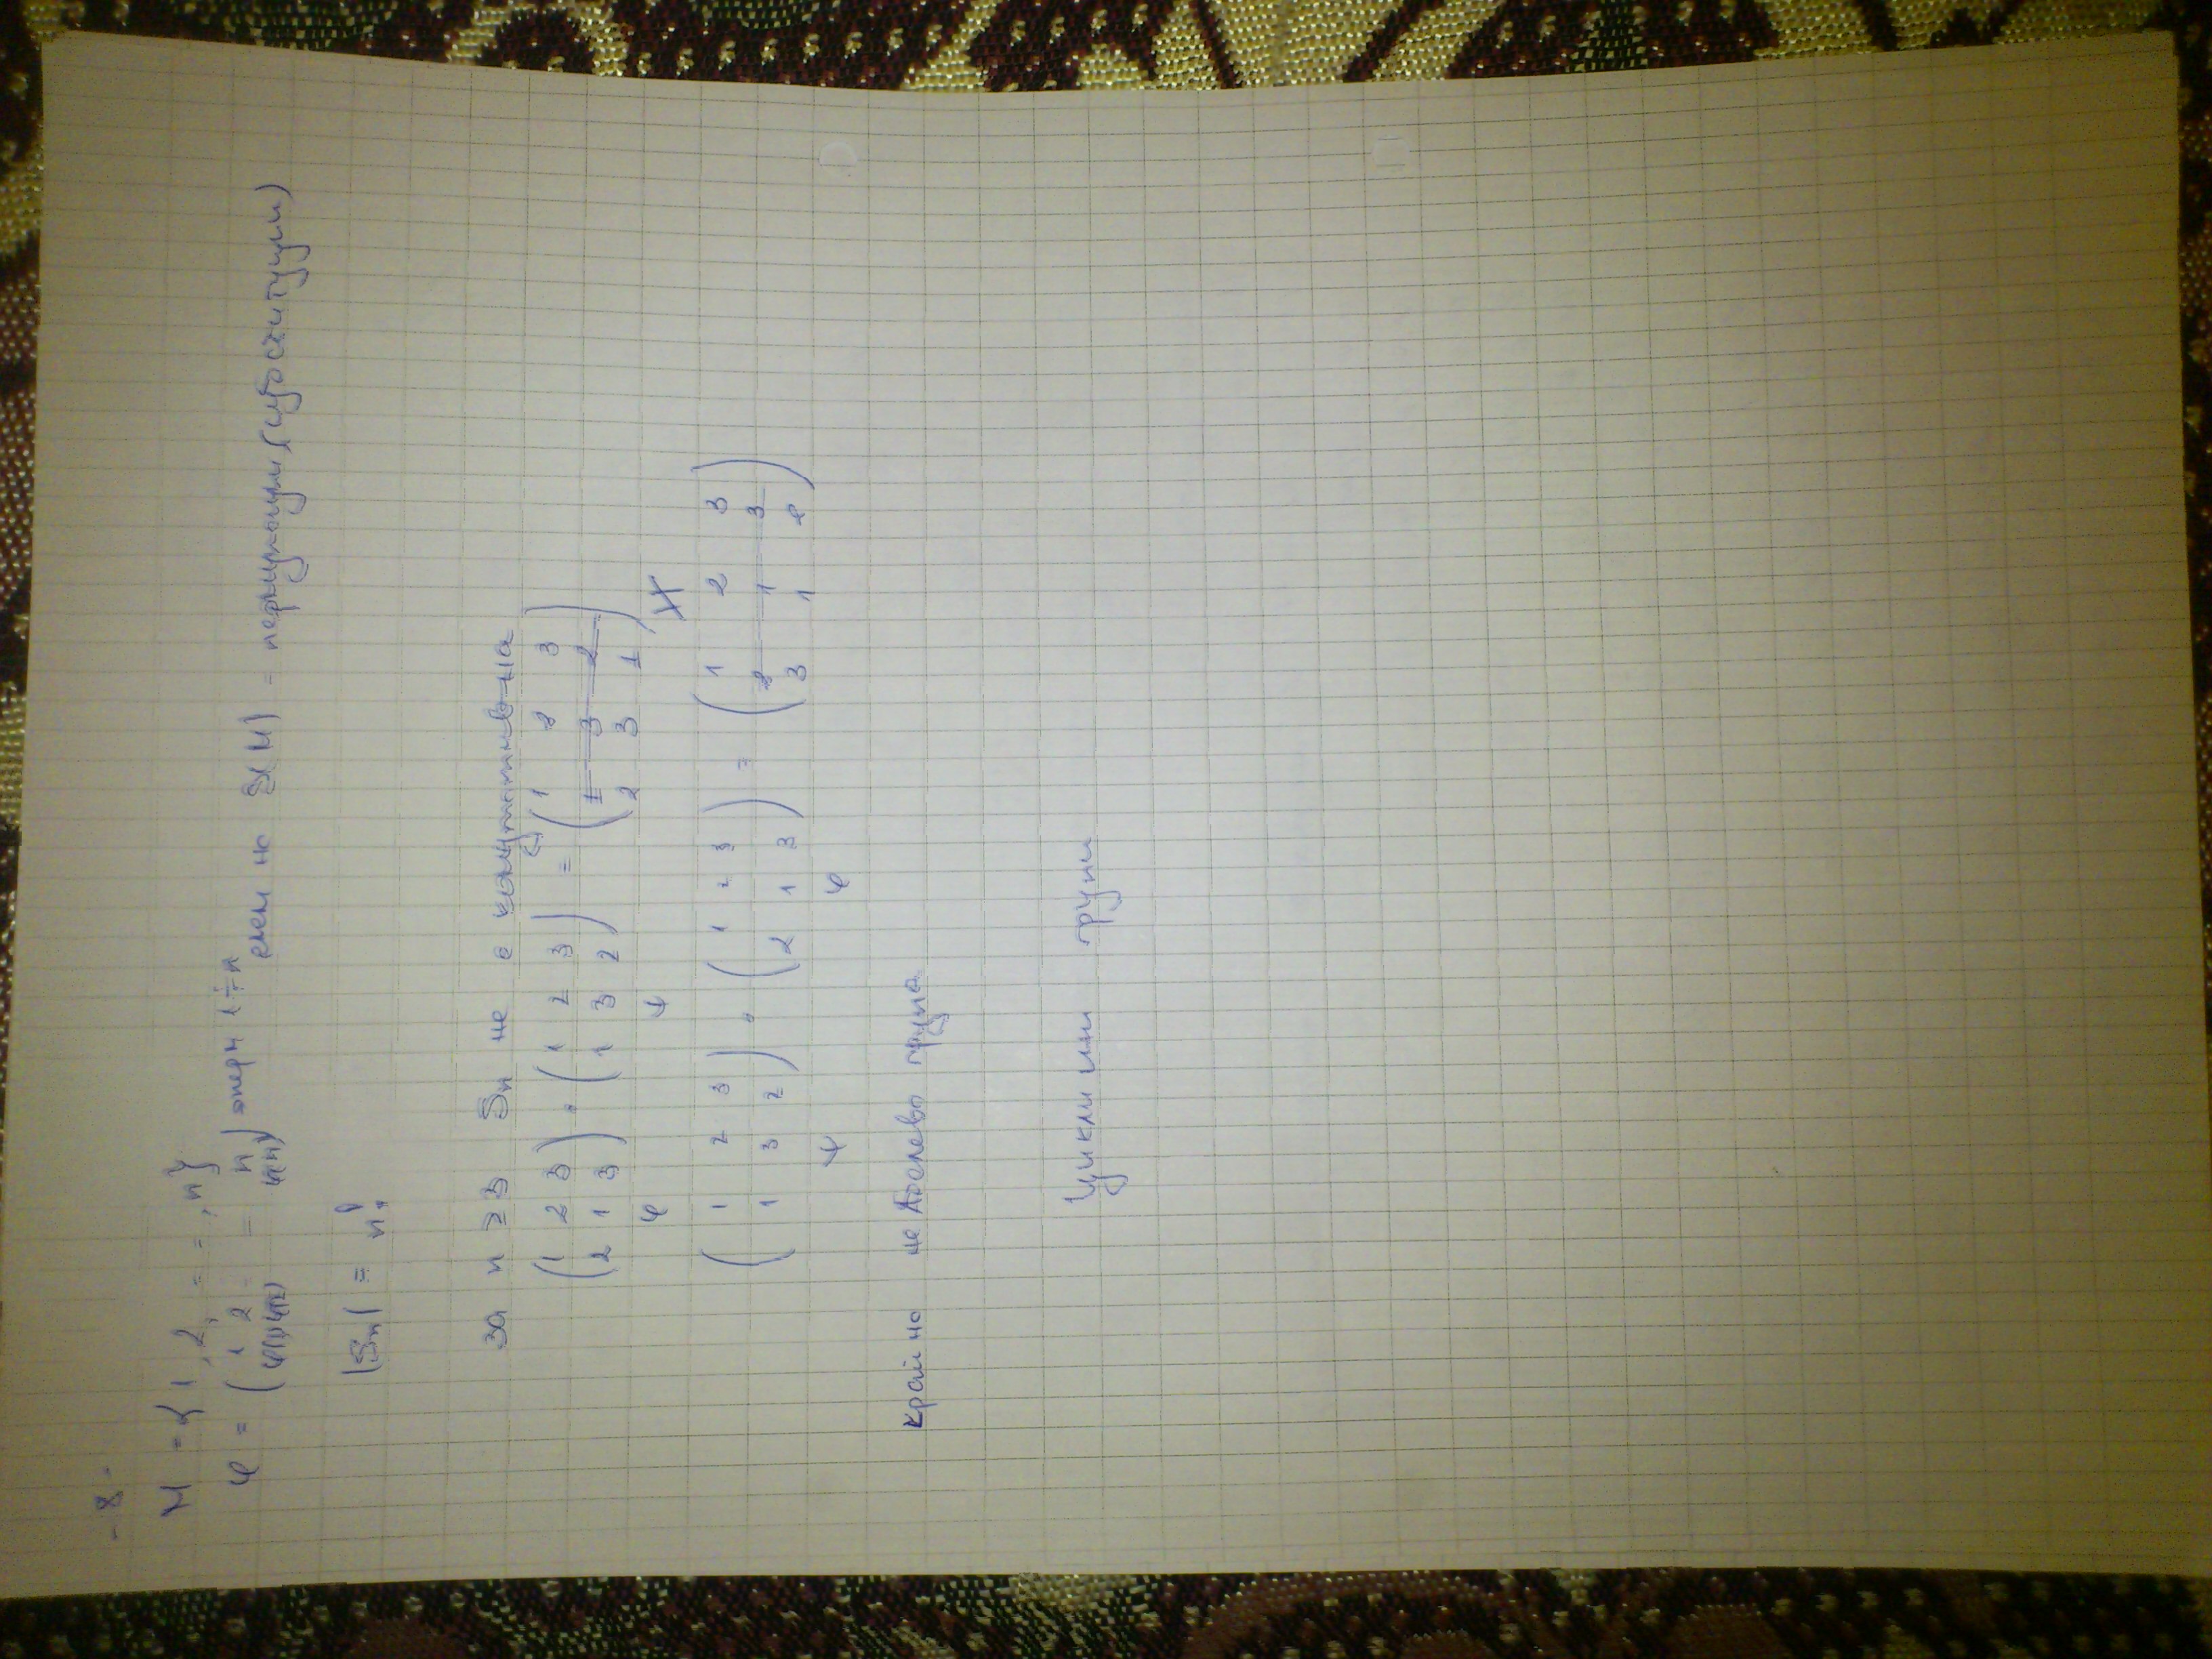 - 8 -
M = { 1, 2, = = , n }
φ = ( 1 2 - - n ) 1÷n
( φ(1) φ(2) φ(n) ) елем на S(M) = пермутации (субституции)
|Sn| = n!
за n ≥ 3 Sn не е комутативна
( 1 2 3 ) . ( 1 2 3 ) = ( 1 2 3 )
( 2 1 3 ) ( 1 3 2 ) ( 1 3 2 )
φ ψ ( 2 3 1 )
∦
( 1 2 3 ) . ( 1 2 3 ) = ( 1 2 3 )
( 1 3 2 ) ( 2 1 3 ) ( 2 1 3 )
ψ φ ( 3 1 2 )
крайно не Абелева група
Циклични групи